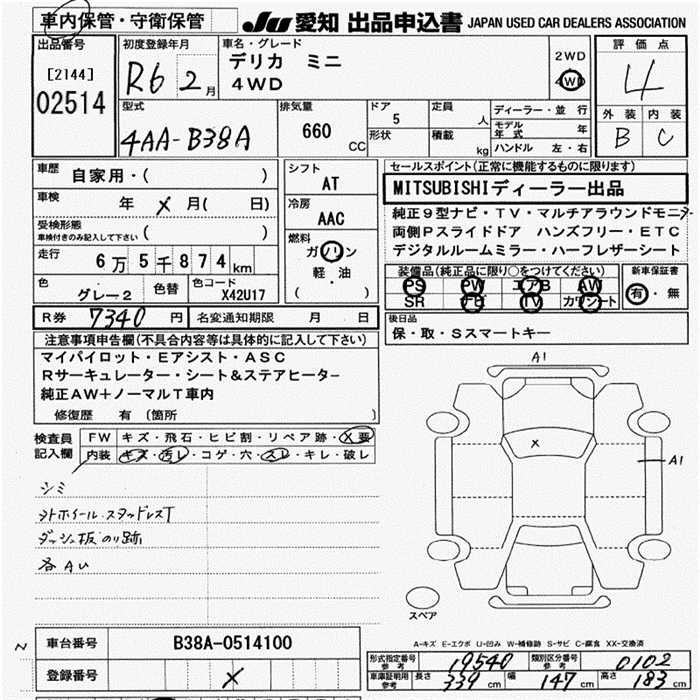 車内保管・守衛保管
JU 愛知 出品申込書 JAPAN USED CAR DEALERS ASSOCIATION
出品番号
[2144]
02514
初度登録年月
R6 2月
車名・グレード
デリカ ミニ
4WD
2WD
4WD
評価点
4
外装 内装
B C
型式
4AA-B38A
排気量
660 CC
ドア
5
形状
定員
人
積載
kg
ディーラー・並行
モデル年式 年
ハンドル 左・右
車歴
自家用・( )
車検
年 × 月( 日)
受検形態
車検付きのみ記入して下さい ( )
走行
6万5千874km
色
グレー2
色替
色コード
X42U17
シフト
AT
冷房
AAC
燃料
ガソリン
軽・油
( )
セールスポイント(正常に機能するものに限ります)
MITSUBISHIディーラー出品
純正9型ナビ・TV・マルチアラウンドモニター
両側Pスライドドア ハンズフリー・ETC
デジタルルームミラー・ハーフレザーシート
装備品(純正品に限り○をつけてください)
PS PW エアB AW
SR ナビ TV カワシート
新車保証書
有・無
R券 7340 円
名変通知期限 月 日
後日品
保・取・Sスマートキー
注意事項申告欄(不具合内容等は具体的に記入して下さい)
マイパイロット・Eアシスト・ASC
Rサーキュレーター・シート&ステアヒーター
純正AW+ノーマルT車内
修復歴 有 (箇所 )
検査員
記入欄
FW キズ・飛石・ヒビ割・リペア跡・X要
内装 キズ・汚レ・コゲ・穴・スレ・キレ・破レ
シミ
外ホイール・スタッドレスT
ダッシュ板のり跡
各AU
A1
×
A1
スペア
A-キズ E-エクボ U-凹み W-補修跡 S-サビ C-腐食 XX-交換済
N
車台番号 B38A-0514100
登録番号 ×
形式指定番号 参考 19540
類別区分番号 参考 0102
車庫証明用 参考 長さ 339 cm 幅 147 cm 高さ 183 cm